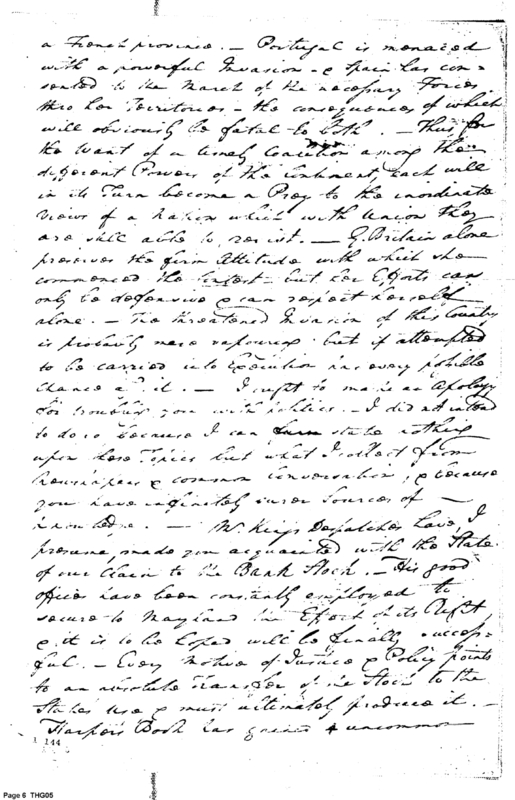 a French province. — Portugal is menaced
with a powerful Invasion — & Spain has con=
sented to the March of the necessary Forces
thro her Territories — the consequences of which
will obviously be fatal to both. — Thus for
the want of a timely Coalition among the
different Powers of the Continent, each will
in its Turn become a Prey to the inordinate
Views of a Nation which with Union they
are still able to resist. — G. Britain alone
preserves the firm Attitude with which she
commenced the Contest — but her Efforts can
only be defensive & can respect herself
alone. — The threatened Invasion of this Country
is probably mere vapouring but if attempted
to be carried into Execution has every possible
Chance it. — I ought to make an Apology
for troubling you with politics. — I did not intend
to do so because I can state nothing
upon these Topics but what I collect from
Newspapers & common Conversation, & because
you have infinitely surer Sources of —
knowledge. — Mr. King's Despatches have, I
presume, made you acquainted with the State
of our Claim to the Bank Stock. — His good
offices have been constantly employed to
secure to Maryland the Effect of its Right
& it is to be hoped will be finally success=
ful. — Every Motive of Justice & Policy points
to an absolute Transfer of the Stock to the
States use & must ultimately produce it. —
Harper's Book has gained uncommon
144
Page 6 THG05